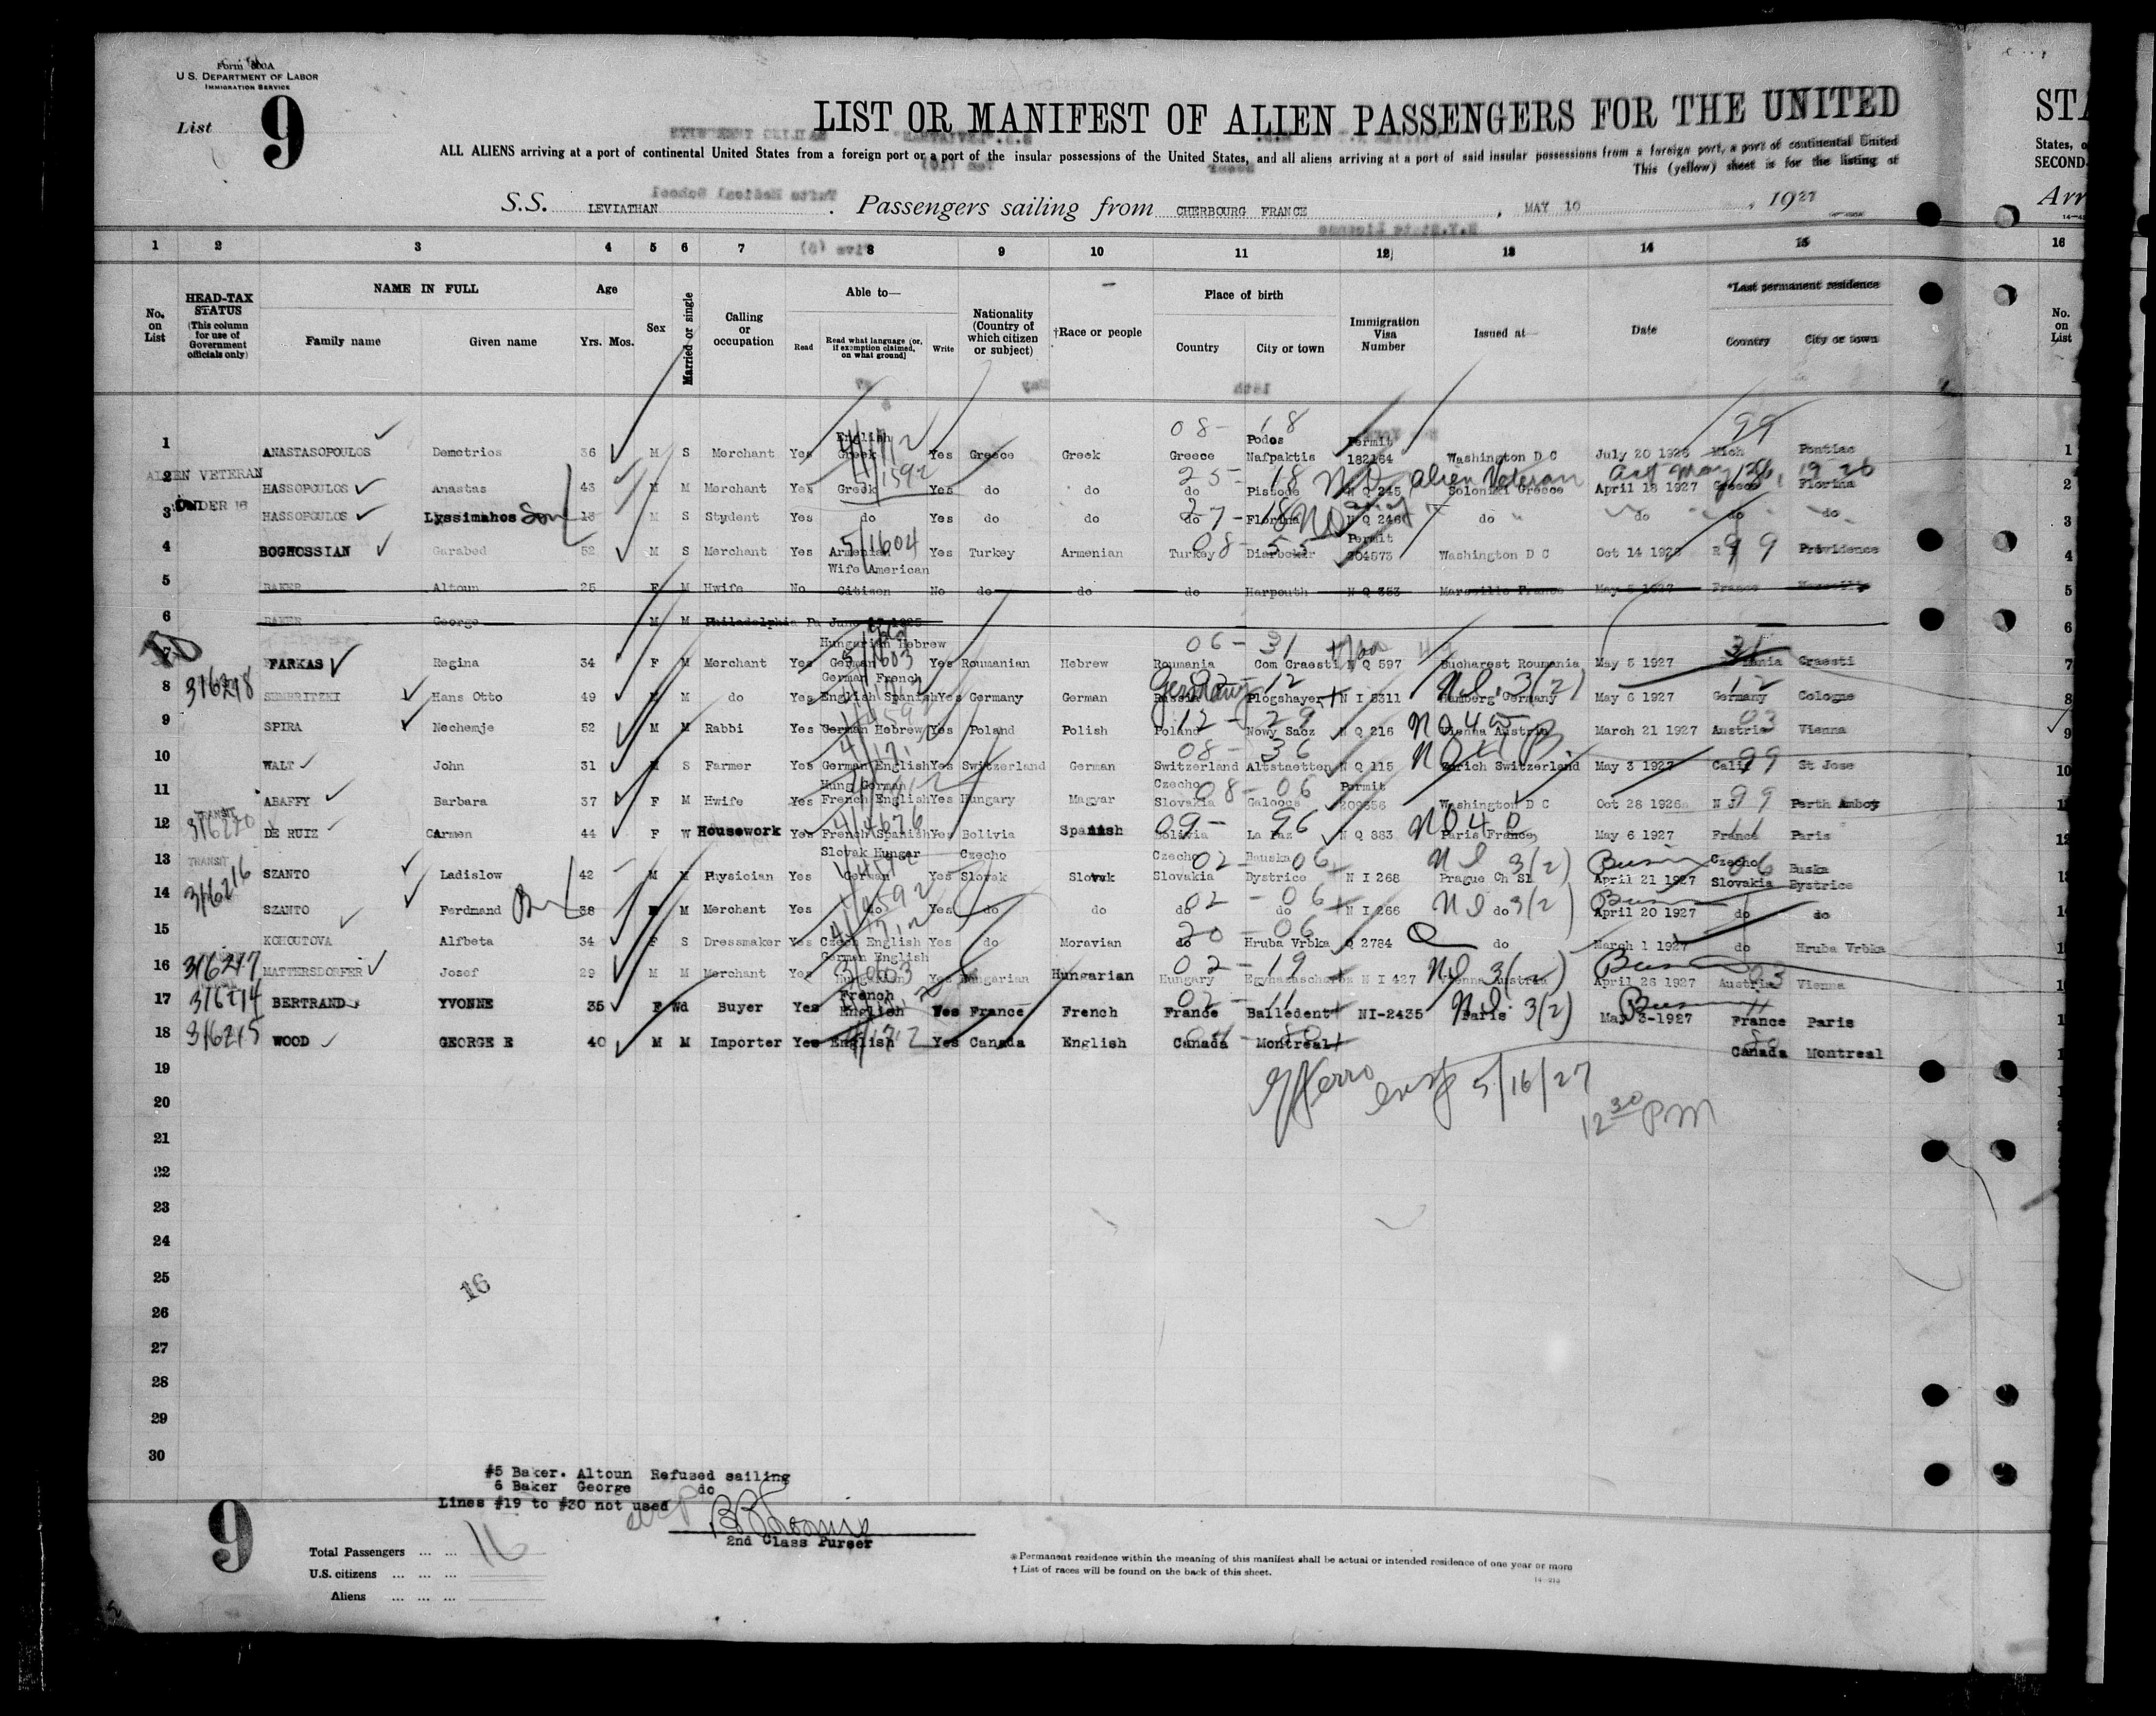 Form 500A
U.S. DEPARTMENT OF LABOR
IMMIGRATION SERVICE
List 9
LIST OR MANIFEST OF ALIEN PASSENGERS FOR THE UNITED
STA
ALL ALIENS arriving at a port of continental United States from a foreign port or a port of the insular possessions of the United States, and all aliens arriving at a port of said insular possessions from a foreign port, a port of continental United
States, o
This (yellow) sheet is for the listing of
SECOND-
S.S. LEVIATHAN. Passengers sailing from CHERBOURG FRANCE, MAY 10, 1927
Arr
1 2 3 4 5 6 7 8 9 10 11 12 13 14 15 16
No. on List
HEAD-TAX STATUS (This column for use of Government officials only)
NAME IN FULL
Family name Given name
Age Yrs. Mos.
Sex
Married or single
Calling or occupation
Able to—
Read Read what language (or, if exemption claimed, on what ground) Write
Nationality (Country of which citizen or subject)
†Race or people
Place of birth
Country City or town
Immigration Visa Number
Issued at—
Date
*Last permanent residence
Country City or town
No. on List
1 ANASTASOPOULOS Demetrios 36 M S Merchant Yes English Greek Yes Greece Greek Greece Podos Nafpaktis Permit 182164 Washington D C July 20 1926 Mich Pontiac 1
ALIEN VETERAN
2 HASSOPOULOS Anastas 43 M M Merchant Yes Greek Yes do do do Pisode N Q 245 Soloniki Greece April 18 1927 Greece Florina 2
Alien Veteran Act May 26, 1926
UNDER 16
3 HASSOPOULOS Lyssimahos Son 13 M S Student Yes do Yes do do do Florina N Q 246 do do do do 3
4 BOGHOSSIAN Garabed 52 M S Merchant Yes Armenian Yes Turkey Armenian Turkey Diarbekir Permit 204573 Washington D C Oct 14 1926 R I Providence 4
5 BAKER Altoun 25 F M Hwife No Wife American Citizen No do do do Harpouth N Q 353 Marseille France May 5 1927 France Marseille 5
6 BAKER George M M Philadelphia Pa June 17 1925 6
7 FARKAS Regina 34 F M Merchant Yes Hungarian Hebrew German Yes Roumanian Hebrew Roumania Com Graesti N Q 597 Bucharest Roumania May 5 1927 Graesti 7
8 316218 SEMBRITZKI Hans Otto 49 M M do Yes German French English Spanish Yes Germany German Russia Germany Plogshayen N I 5311 Hamberg Germany May 6 1927 Germany Cologne 8
9 SPIRA Nechemje 52 M M Rabbi Yes German Hebrew Yes Poland Polish Poland Nowy Sacz N Q 216 Vienna Austria March 21 1927 Austria Vienna 9
10 WALT John 31 M S Farmer Yes German English Yes Switzerland German Switzerland Altstaetten N Q 115 Zurich Switzerland May 3 1927 Calif St Jose 10
11 ABAFFY Barbara 37 F M Hwife Yes Hung German French English Yes Hungary Magyar Czecho Slovakia Galocos Permit 209656 Washington D C Oct 28 1926 N J Perth Amboy
TRANSIT
12 316220 DE RUIZ Carmen 44 F W Housework Yes French Spanish Yes Bolivia Spanish Bolivia La Paz N Q 883 Paris France May 6 1927 France Paris
TRANSIT
13 316216 SZANTO Ladislow 42 M M Physician Yes Slovak Hungar German Czecho Slovak Slovak Czecho Slovakia Bauska Bystrice N I 268 Prague Ch Sl April 21 1927 Czecho Slovakia Buska Bystrice
14 SZANTO Ferdmand 38 M M Merchant Yes do Yes do do do do N I 266 do April 20 1927 do do
15 KOHOUTOVA Alfbeta 34 F S Dressmaker Yes Czech English Yes do Moravian do Hruba Vrbka Q 2784 do March 1 1927 do Hruba Vrbka
16 316217 MATTERSDORFER Josef 29 M M Merchant Yes German English Hungarian Yes Hungarian Hungarian Hungary N I 427 Vienna Austria April 26 1927 Austria Vienna
17 316214 BERTRAND YVONNE 35 F Wd Buyer Yes French English Yes France French France Balledent NI-2435 Paris May 3-1927 France Paris
18 316215 WOOD GEORGE E 40 M M Importer Yes English Yes Canada English Canada Montreal Canada Montreal
19
5/16/27
20
12 30 PM
21
22
23
24
25
16
26
27
28
29
30
#5 Baker. Altoun Refused sailing
6 Baker George do
Lines #19 to #30 not used
2nd Class Purser
9
Total Passengers ... ... 16
U.S. citizens ... ... ...
Aliens ... ... ...
*Permanent residence within the meaning of this manifest shall be actual or intended residence of one year or more
† List of races will be found on the back of this sheet.
14—213